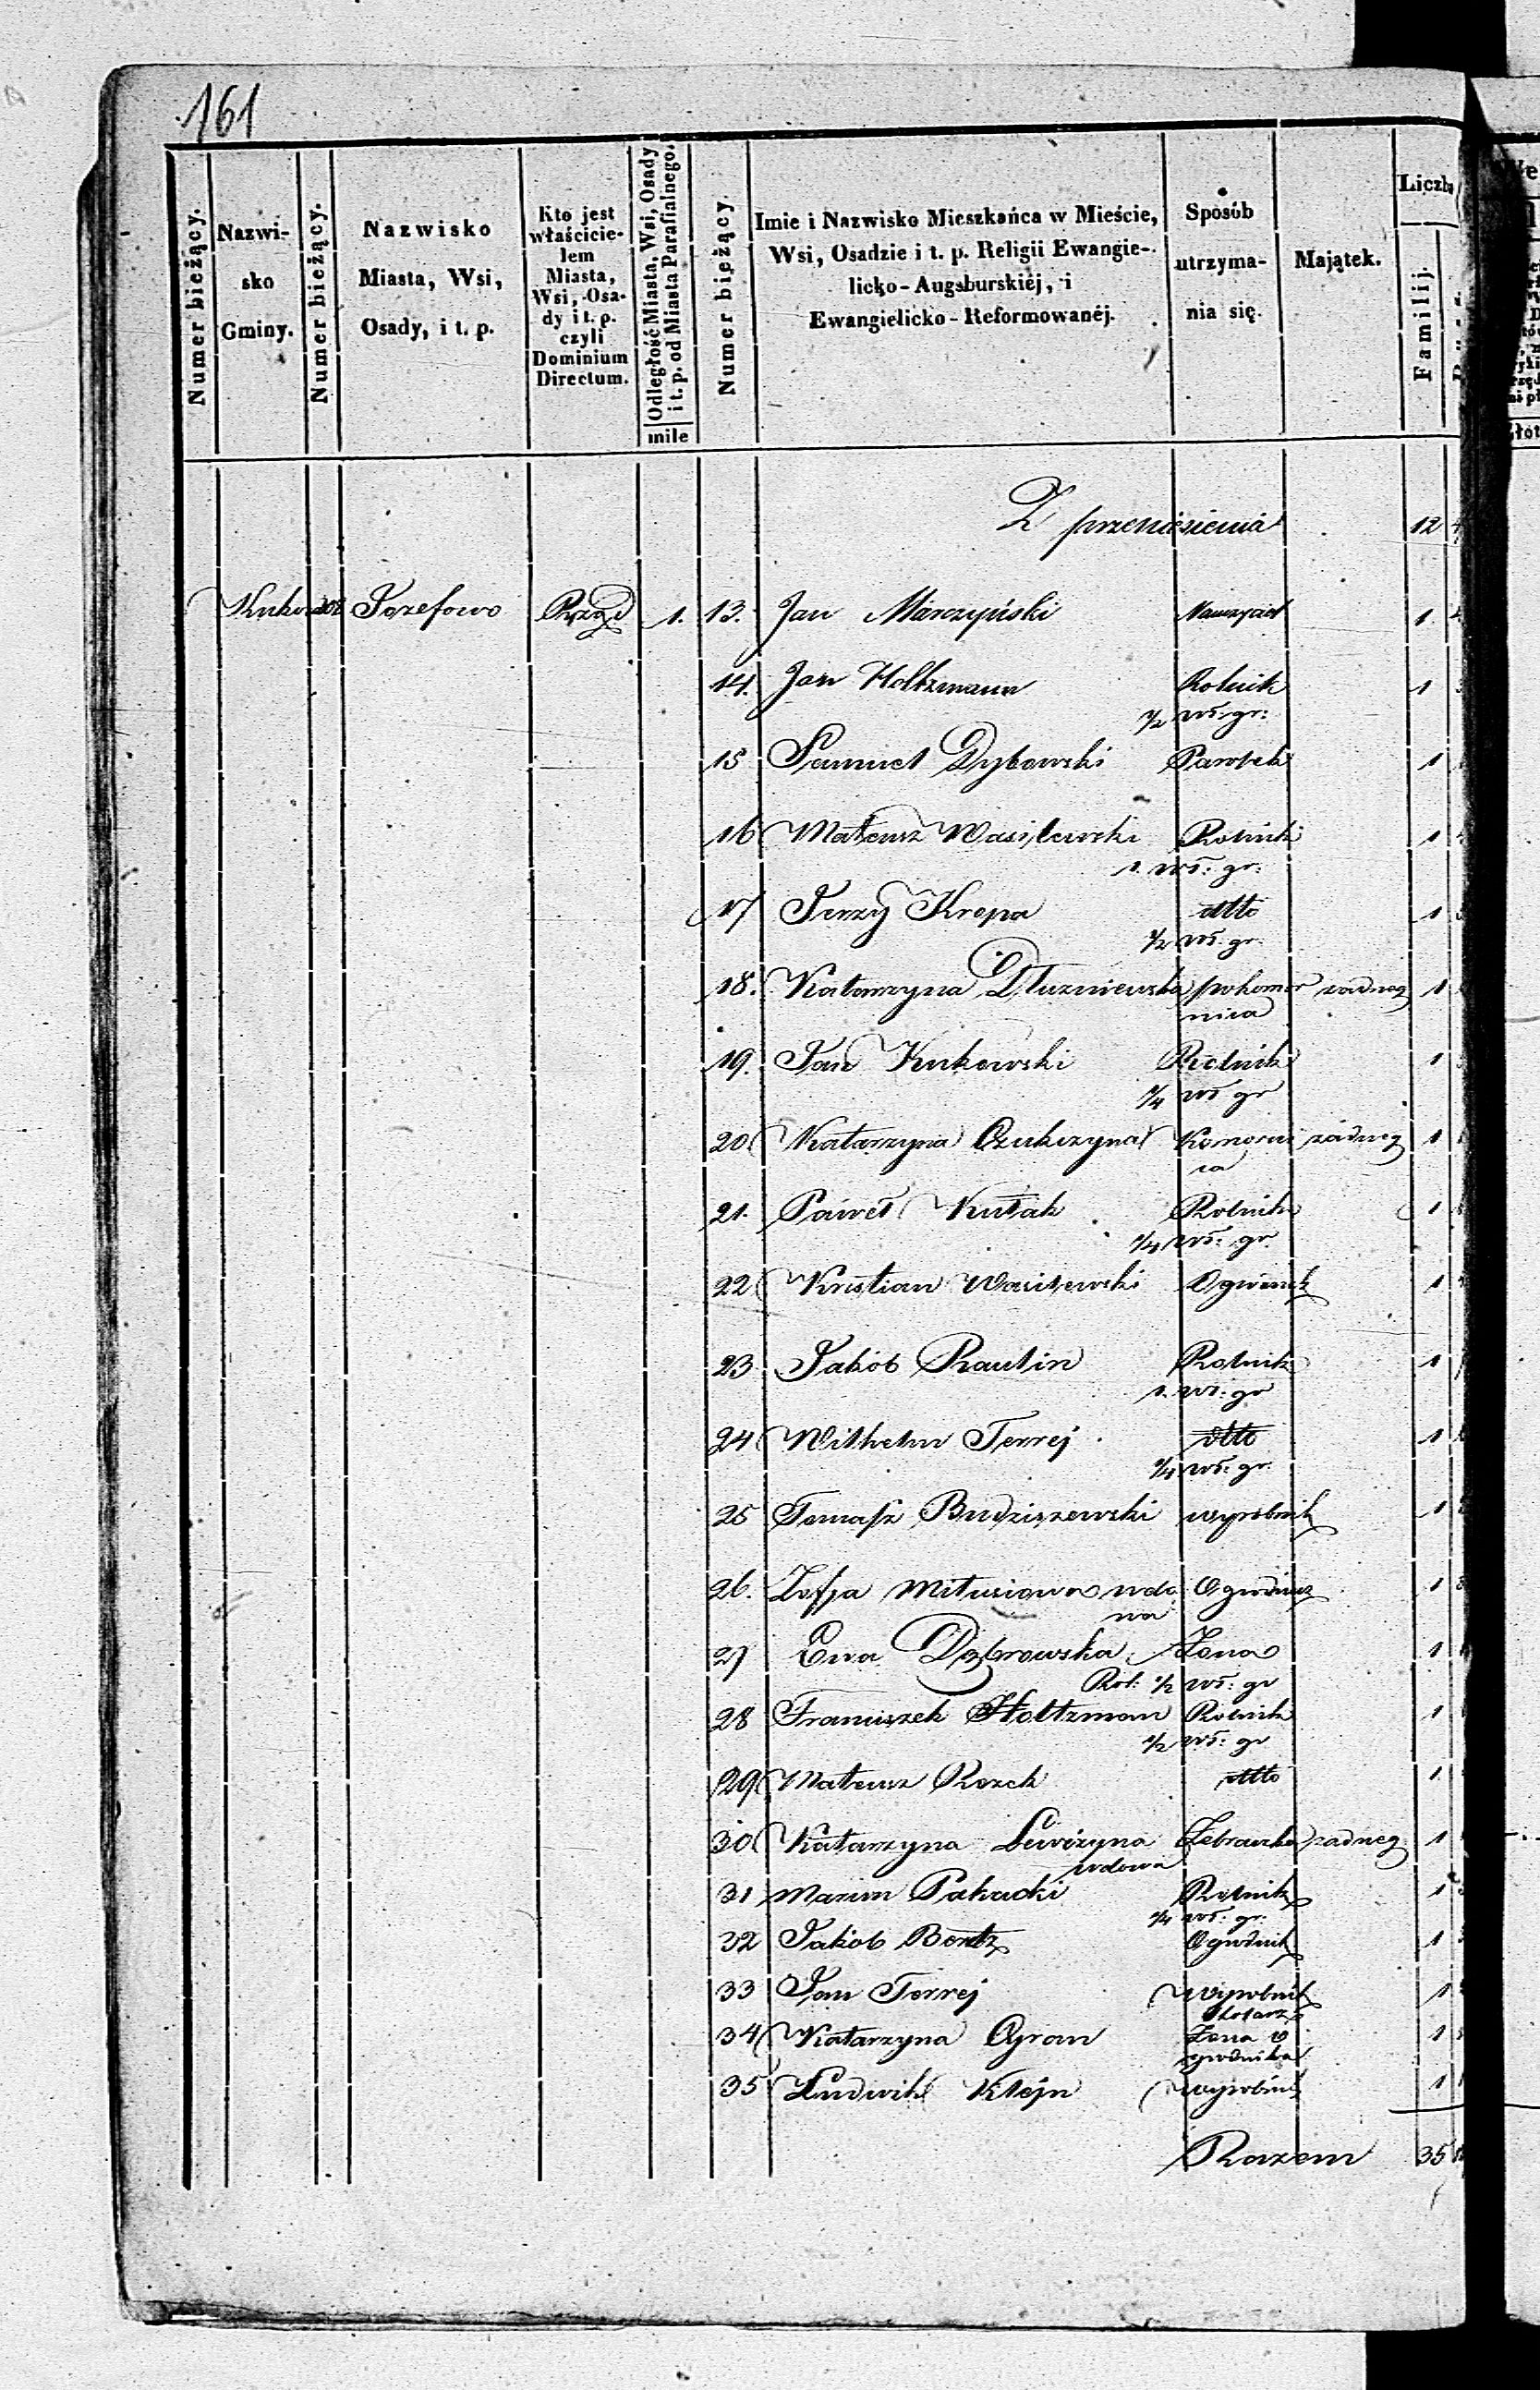 161
Numer bieżący.
Nazwi-
sko
Gminy.
Numer bieżący.
Nazwisko
Miasta, Wsi,
Osady, i t. p.
Kto jest
właścicie-
lem
Miasta,
Wsi, Osa-
dy i t. p.
czyli
Dominium
Directum.
Odległość Miasta, Wsi, Osady
i t. p. od Miasta Parafialnego.
mile
Numer bieżący
Imie i Nazwisko Mieszkańca w Mieście,
Wsi, Osadzie i t. p. Religii Ewangie-
licko-Augsburskiéj, i
Ewangielicko-Reformowanéj.
Sposób
utrzyma-
nia się.
Majątek.
Liczba
Familij.
Z przeniesienia 12
Józefowo Rząd 1. 13. Jan Marczyński Nauczyciel 1
14. Jan Holtzmann Rolnik 1
1/2 wł: gr:
15 Samuel Dybowski Parobek 1
16 Mateusz Wasilewski Rolnik 1
1. wł: gr:
17 Jerzy Kropa dtto 1
1/2 wł. gr.
18. Katarzyna Dłuzniewska pokomor zadneg 1
nica
19. Jan Kukowski Rolnik 1
1/4 wł gr
20 Katarzyna Komorni zadneg 1
ca
21. Paweł Kułak Rolnik 1
1/4 wł: gr.
22 Kristian Wasilewski Ogrodnik 1
23 Jakób Rautin Rolnik 1
1. wł: gr
24 Wilhelm Terrej dtto 1
1/4 wł: gr.
25 Tomasz Budziszewski wyrobnik 1
26. Zofja Mitusiowa wdo 1
wa
27 Ewa Dąbrowska Zona 1
Rol: 1/2 wł: gr
28 Franciszek Holtzman Rolnik 1
1/2 wł: gr
29 Mateusz Rozek dtto 1.
30 Katarzyna Zebraczka zadneg 1
wdowa
31 Marcin Pakucki Rolnik 1
1/4 wł. gr.
32 Jakób Bentz Ogrodnik 1
33 Jan Terrej Wyrobnik 1
34 Katarzyna Gran Zona o 1
grodnika
35 Ludwik Klejn Wyrobnik 1
Razem 35